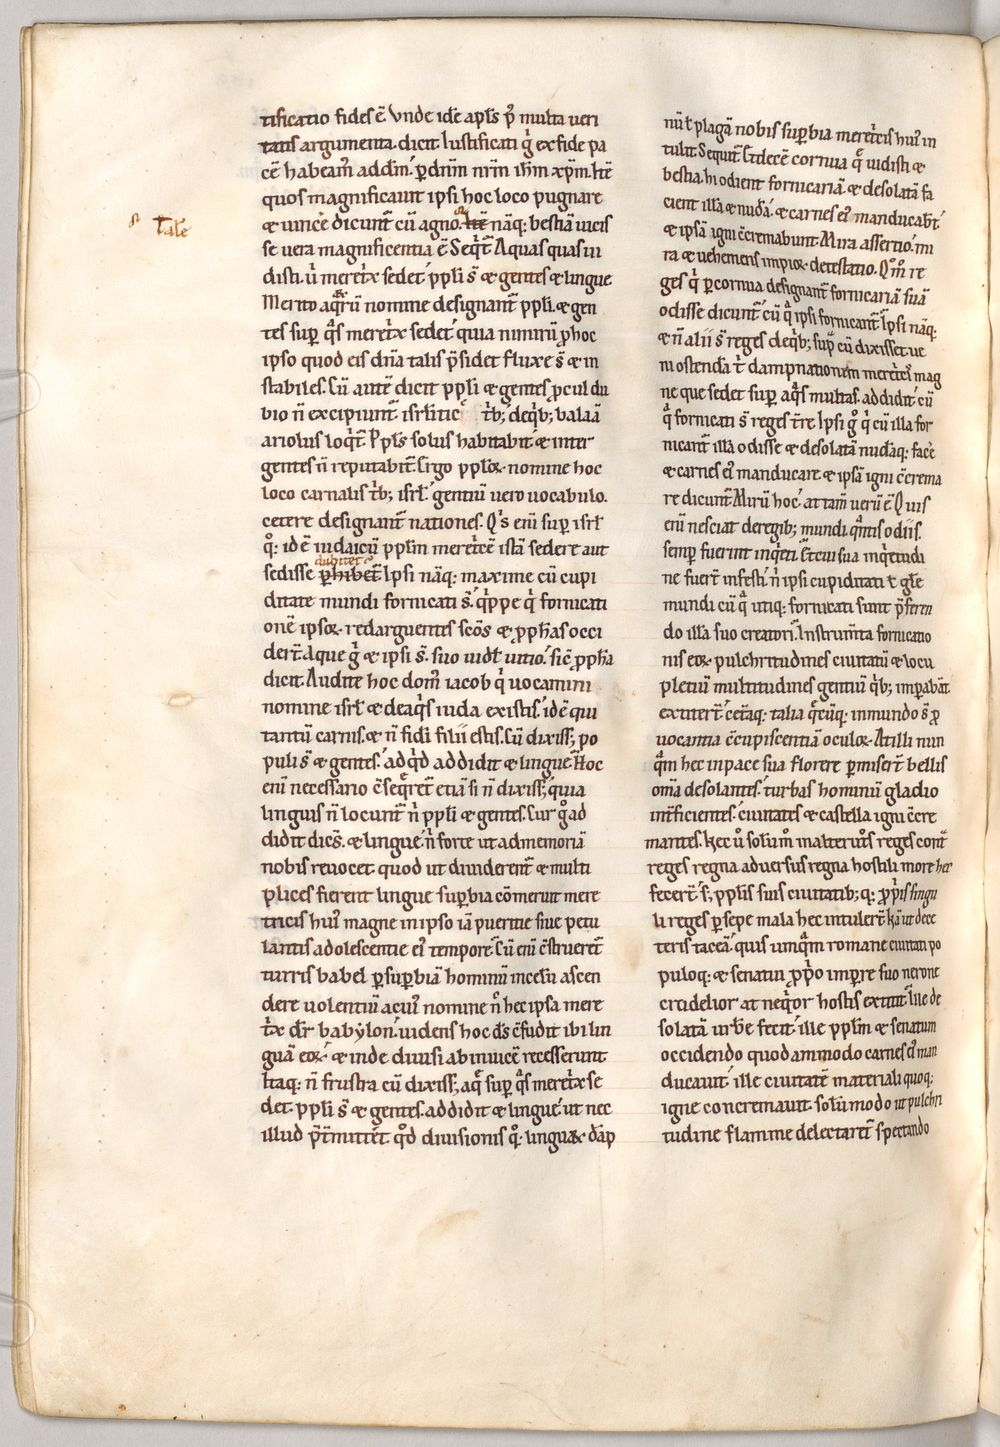 Tale
tificatio fides ē Vnde idē apl̄s p̄ multa veri
tatis argumenta. dicit Iustificati g̊ ex fide pa
cē habeam⁹ ad dm̄. ꝑ dn̄m nr̄m ih̄m xp̄m. hc̄
quos magnificauit ipsi hoc loco pugnare
& vincēe dicunt̄ cū agno. hc̄ nāq; bestiā uicis
se vera magnificentia ē Seqt̄ Aquas quas ui
disti. ubi meret͛x sedet. ppl̄i s̄ & gentes & lingue
Merito aqͣrū nomine designant̄ ppl̄i. & gen
tes suꝑ q̄s meret͛x sedet. quia nimirū ꝓ hoc
ipso quod eis dn̄a talis p̄sidet fluxe s̄ & in
stabiles. Cū autē dicit ppl̄i & gentes ꝓcul du
bio n̄ excipiunt̄ isrl̄itic̄ t̄b; de qb; balaā
ariolus loqt̄ Ppl̄s solus habitabit & inter
gentes n̄ reputabit̄ Ergo ppl̄oꝝ nomine hoc
loco carnalis t̄b; isrl̄. gentiū uero uocabulo.
cetere designant̄ nationes. Q̄s eni suꝑ isrl̄
q̊: id ē iudaicū ppl̄m meret͛cē istā sedere aut
dubitet
sedisse ꝑhibet̄ Ipsi nāq; maxime cū cupi
ditate mundi fornicati s̄. qͥppe qͥ fornicati
onē ipsoꝝ redarguentes sc̄os & ꝓph̄as occi
dert̄. Aque g̊ & ipsi s̄. suo uidl̄ uitio. sic̄ ꝓph̄a
dicit. Audite hoc dom⁹ iacob qͥ uocamini
nomine isrl̄ & de aq̄s iuda existis. id ē qui
tantū carnis. & n̄ fidei filii estis. Cū dixiss; po
puli s̄ & gentes. ad qͥd addidit & lingue Hoc
eni necessario c̄seqret̄ etiā si n̄ dixiss; quia
linguis n̄ locunt̄ n̄ ppl̄i & gentes. Cur g̊ ad
didit dic̄s. & lingue. n̄ forte ut ad memoriā
nobis reuocet quod ut diuiderent̄ & multi
plices fierent lingue suꝑbia cōmeruit mere
tricis hui⁹ magne in ipso iā pueritie siue petu
lantis adolescentie ei⁹ tempore. Cū eni c̄strueret̄
turris babel ꝑ suꝑbiā hominū in celū ascen
dere uolentiū a cui⁹ nomine n̄c hec ipsa mere
t͛x dr̄ babylon. uidens hoc ds̄ c̄fudit ibi lin
guā eoꝝ. & inde diuisi ab inuicē recesserunt
Itaq: n̄ frustra cū dixiss; aqͥ suꝑ q̄s meret͛x se
det. ppl̄i s̄ & gentes. addidit & lingue. ut nec
illud p̄t̄mittet. qd̄ diuisionis q̊: linguaꝝ dāp
nū t̄ plagā nobis suꝑbia meret͛cis hui⁹ in
tulit. Sequit̄ Et decē cornua qͥ uidisti &
bestia. hi odient fornicariā & desolatā fa
cient illā & nudā. & carnes ei⁹ manducabt̄.
& ipsā igni c̄cremabunt. Mira assertio. mi
ra & uehemens impioꝝ detestatio. Qm̄o re
ges qͥ ꝑ cornua designant̄ fornicariā suā
odisse dicunt̄. cū qͣ ipsi fornicant̄ Ipsi nāq;
& n̄ alii s̄ reges de qb; supͣ cū dixisset ue
ni ostendā t̄ dampnationem meret͛cis mag
ne que sedet suꝑ aq̄s multas. addidit. cū
qͣ fornicati s̄ reges t̄re Ipsi g̊ qͥ cū illa for
nicant̄ illā odisse & desolatā nudāq; facēe
& carnes ei⁹ manducare & ipsā igni c̄crema
re dicunt̄ Mirū hoc. at tam̄ uerū ē Quis
eni nesciat de regib; mundi qͣntis odiis.
semꝑ fuerint inqͥeti Et cui sua inqͥetudi
ne fuert̄ infesti. n̄ ipsi cupiditati t̄ gl̄e
mundi cū qͣ utiq: fornicati sunt p̄feren
do illā suo creatori. Instrum̄ta fornicatio
nis eoꝝ pulchritudines ciuitatū & locu
pletiū multitudines gentiū qb; imꝑabāt
extitert̄. cet̄aq; talia qͥcūq; in mundo s̄ ꝓ
uocantia c̄cupiscentiā oculoꝝ. At illi nun
qͣm hec in pace sua florere ꝑmisert̄ bellis
om̄ia desolantes. turbas hominū gladio
int̄ficientes. ciuitates & castella igni c̄cre
mantes. Hec u̇ solum̊ in alterut͛s reges contͣ
reges regna aduersus regna hostili more hec
fecert̄ s; ppl̄is suis ciuitatib; q: ꝓpͥis singu
li reges ꝑsepe mala hec intulert̄ Nā ut de ce
teris taceā. quis umqͣm romane ciuitati po
puloq; & senatui ꝓpͥo imꝑre suo nerone
crudelior at neqͥor hostis extitit Ille de
solatā urbē fecit. ille ppl̄m & senatum
occidendo quodammodo carnes ei⁹ man
ducauit. ille ciuitatē materiali quoq;
igne concremauit. solūmodo ut pulchri
tudine flamme delectaret̄ spectando